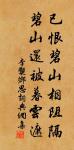 已恨碧山相阻隔
碧山還被暮雲遮
李覯鄉思詞典網集